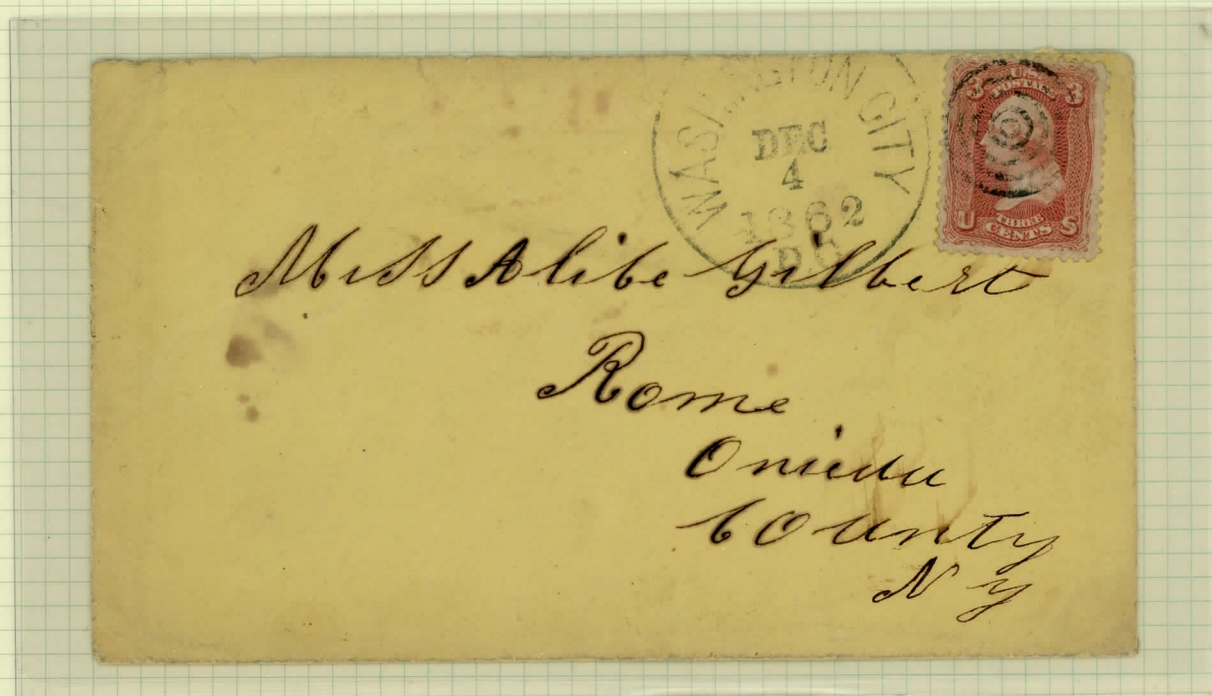 WASHINGTON CITY
DEC
4
1862
DC
3 U.S. 3
POSTAGE
U THREE S
CENTS
Miss Alibe Gilbert
Rome
Oneida
County
N y